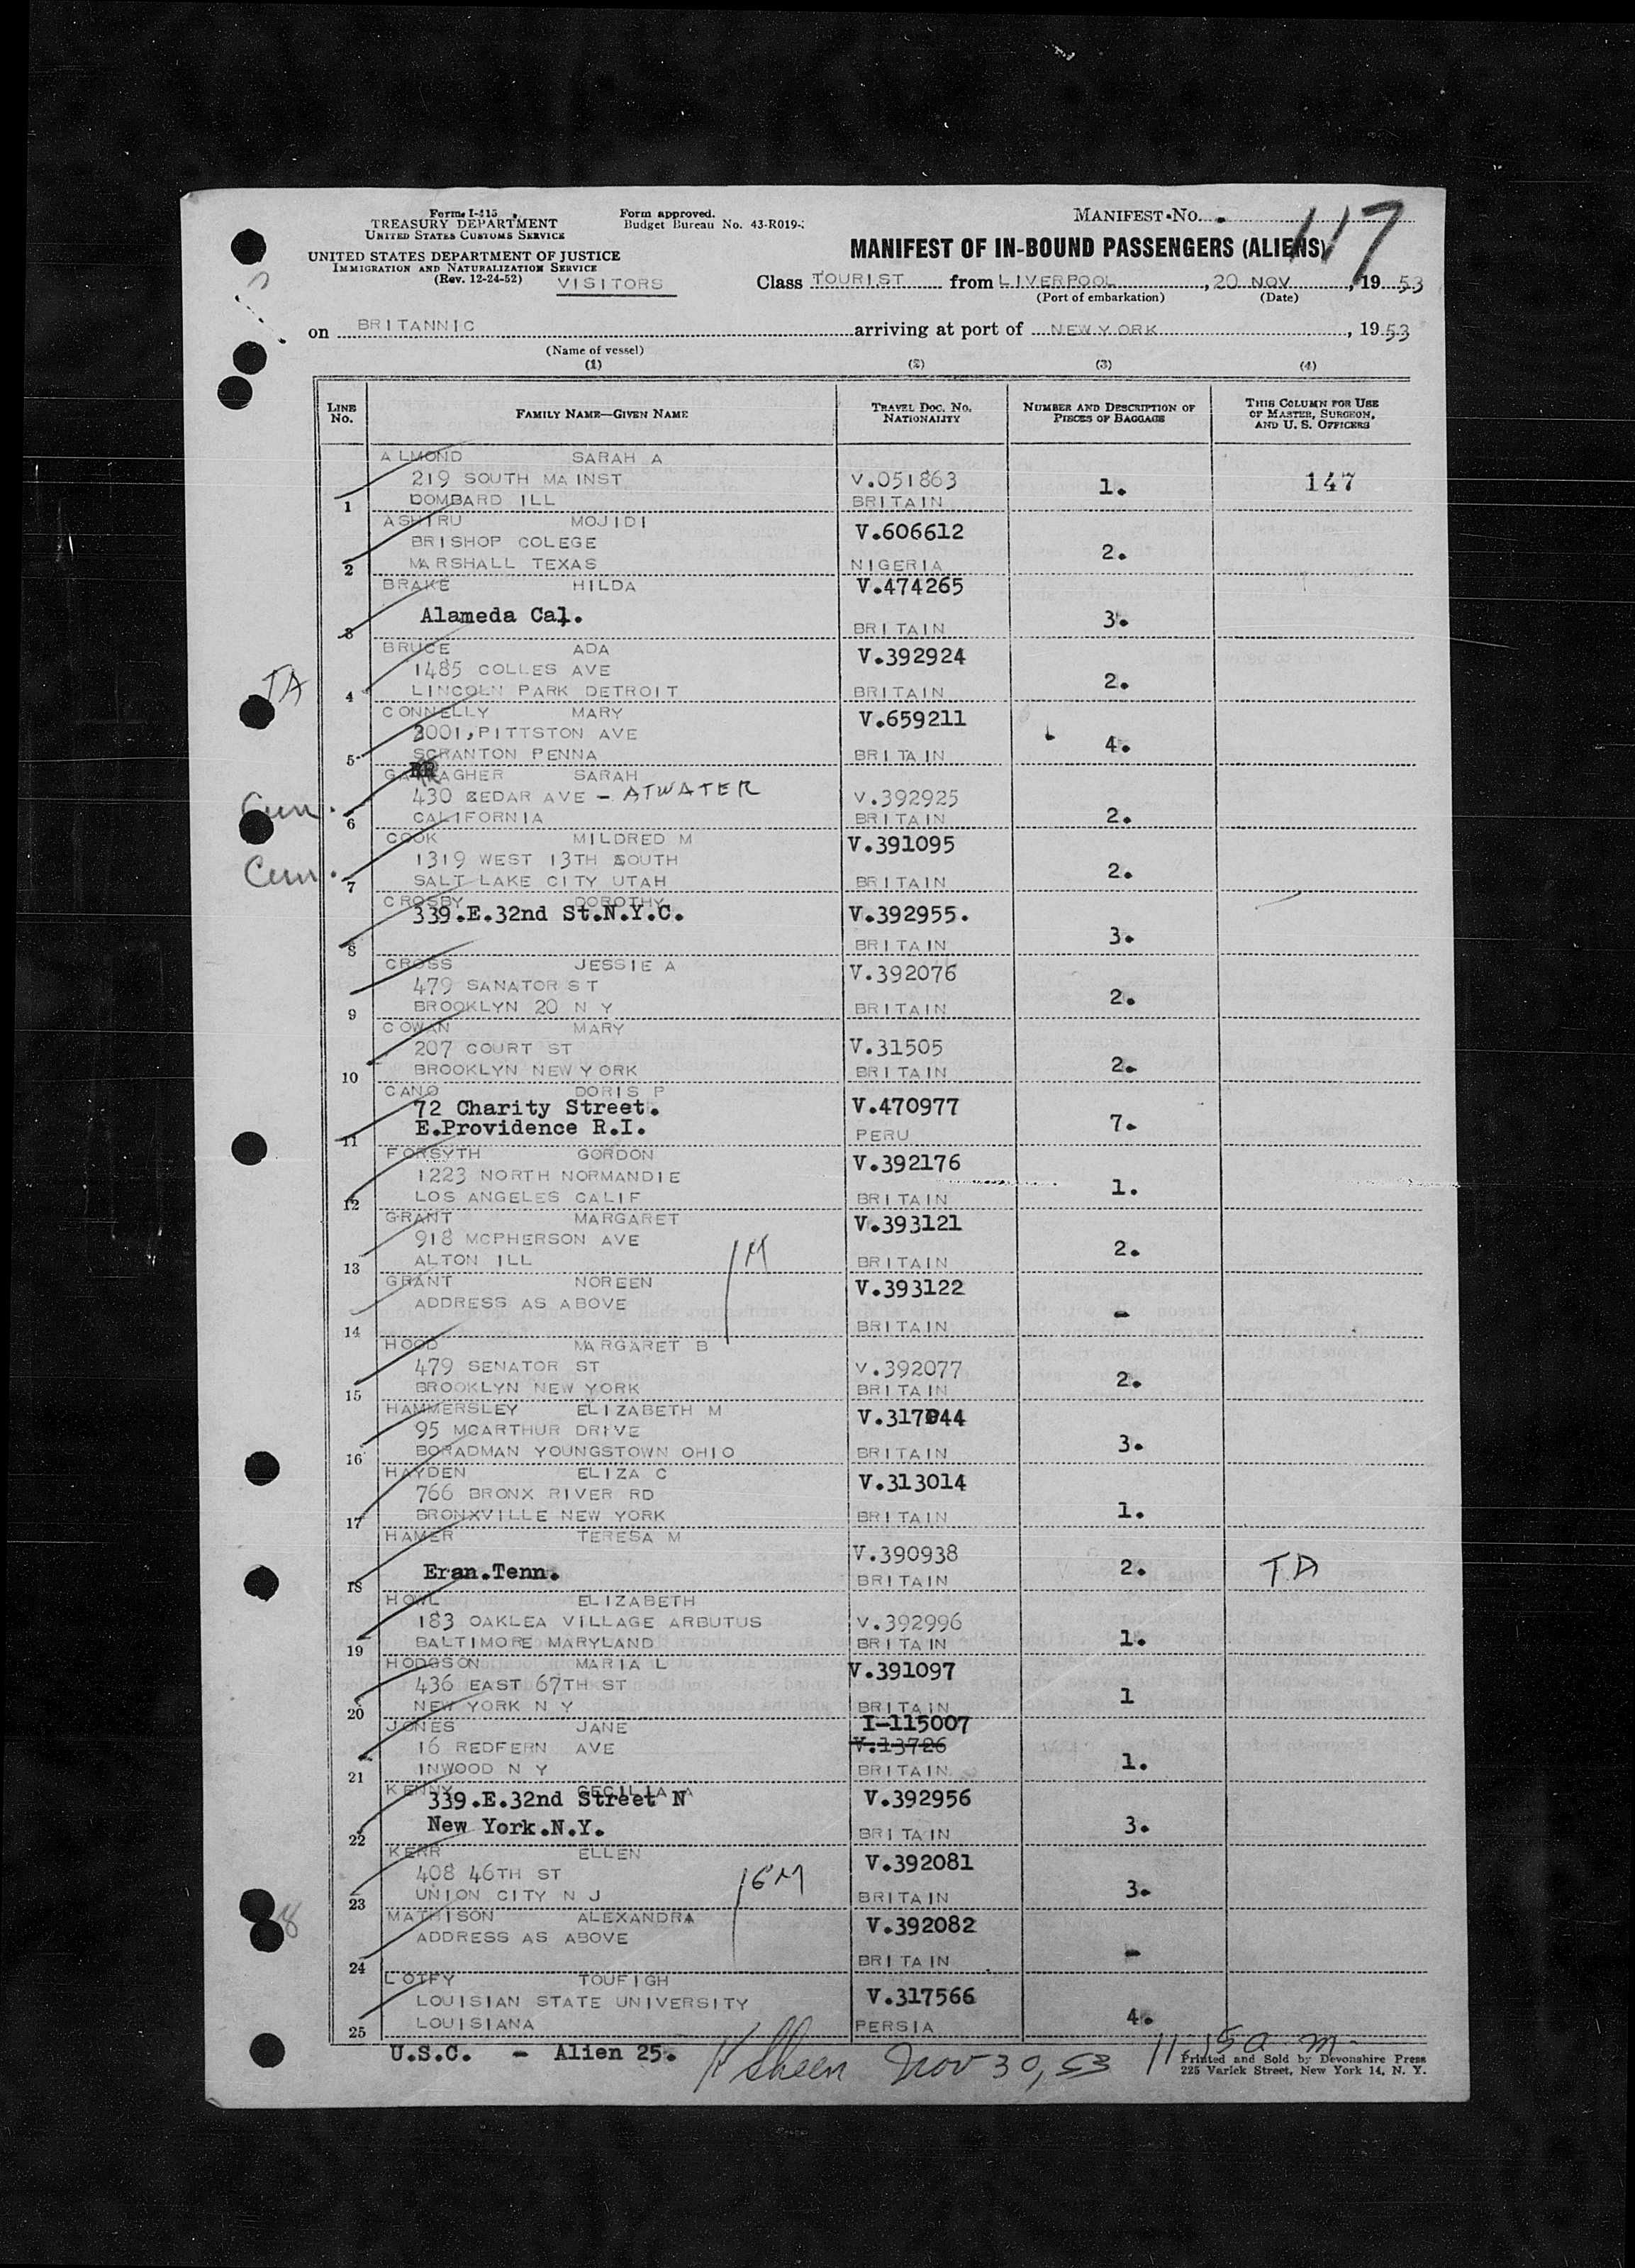 Form I-415
TREASURY DEPARTMENT
UNITED STATES CUSTOMS SERVICE
UNITED STATES DEPARTMENT OF JUSTICE
IMMIGRATION AND NATURALIZATION SERVICE
(Rev. 12-24-52) VISITORS
Form approved.
Budget Bureau No. 43-R019-
MANIFEST NO. 117
MANIFEST OF IN-BOUND PASSENGERS (ALIENS)
Class TOURIST from LIVERPOOL, 20 NOV, 1953
(Port of embarkation) (Date)
on BRITANNIC arriving at port of NEW YORK, 1953
(Name of vessel)
(1) (2) (3) (4)
LINE No. FAMILY NAME—GIVEN NAME TRAVEL DOC. NO. NATIONALITY NUMBER AND DESCRIPTION OF PIECES OF BAGGAGE THIS COLUMN FOR USE OF MASTER, SURGEON, AND U. S. OFFICERS
ALMOND SARAH A
219 SOUTH MAINST V.051863 1. 147
1 DOMBARD ILL BRITAIN
ASHIRU MOJIDI
BRISHOP COLEGE V.606612 2.
2 MARSHALL TEXAS NIGERIA
BRAKE HILDA V.474265
3 Alameda Cal. BRITAIN 3.
BRUCE ADA V.392924
1485 COLLES AVE 2.
TA 4 LINCOLN PARK DETROIT BRITAIN
CONNELLY MARY V.659211
3001, PITTSTON AVE 4.
5 SCRANTON PENNA BRITAIN
GARRAGHER SARAH
430 CEDAR AVE - ATWATER V.392925
6 CALIFORNIA BRITAIN 2.
COOK MILDRED M V.391095
1319 WEST 13TH SOUTH 2.
7 SALT LAKE CITY UTAH BRITAIN
CROSBY DOROTHY
339.E.32nd St.N.Y.C. V.392955.
8 BRITAIN 3.
CROSS JESSIE A V.392076
479 SANATOR ST 2.
9 BROOKLYN 20 N Y BRITAIN
COWAN MARY
207 COURT ST V.31505
10 BROOKLYN NEW YORK BRITAIN 2.
CANO DORIS P
72 Charity Street. V.470977
11 E.Providence R.I. PERU 7.
FORSYTH GORDON V.392176
1223 NORTH NORMANDIE
12 LOS ANGELES CALIF BRITAIN 1.
GRANT MARGARET V.393121
918 MCPHERSON AVE 2.
13 ALTON ILL BRITAIN
GRANT NOREEN V.393122
ADDRESS AS ABOVE -
14 BRITAIN
HOOD MARGARET B
479 SENATOR ST V.392077 2.
15 BROOKLYN NEW YORK BRITAIN
HAMMERSLEY ELIZABETH M V.317044
95 MCARTHUR DRIVE 3.
16 BORADMAN YOUNGSTOWN OHIO BRITAIN
HAYDEN ELIZA C V.313014
766 BRONX RIVER RD
17 BRONXVILLE NEW YORK BRITAIN 1.
HAMER TERESA M
V.390938 2. TA
18 Eran.Tenn. BRITAIN
HOWL ELIZABETH
183 OAKLEA VILLAGE ARBUTUS V.392996
19 BALTIMORE MARYLAND BRITAIN 1.
HODGSON MARIA L V.391097
436 EAST 67TH ST 1
20 NEW YORK N Y BRITAIN
JONES JANE I-115007
16 REDFERN AVE V.13726
21 INWOOD N Y BRITAIN 1.
KENNY CECILIA A
339.E.32nd Street N V.392956
22 New York.N.Y. BRITAIN 3.
KERR ELLEN V.392081
408 46TH ST 3.
23 UNION CITY N J BRITAIN
MATHISON ALEXANDRA V.392082
ADDRESS AS ABOVE -
24 BRITAIN
LOTFY TOUFIGH
LOUISIAN STATE UNIVERSITY V.317566
25 LOUISIANA PERSIA 4.
U.S.C. - Alien 25. Nov 30, 53 11.15 a.m.
Printed and Sold by Devonshire Press
225 Varick Street, New York 14, N. Y.